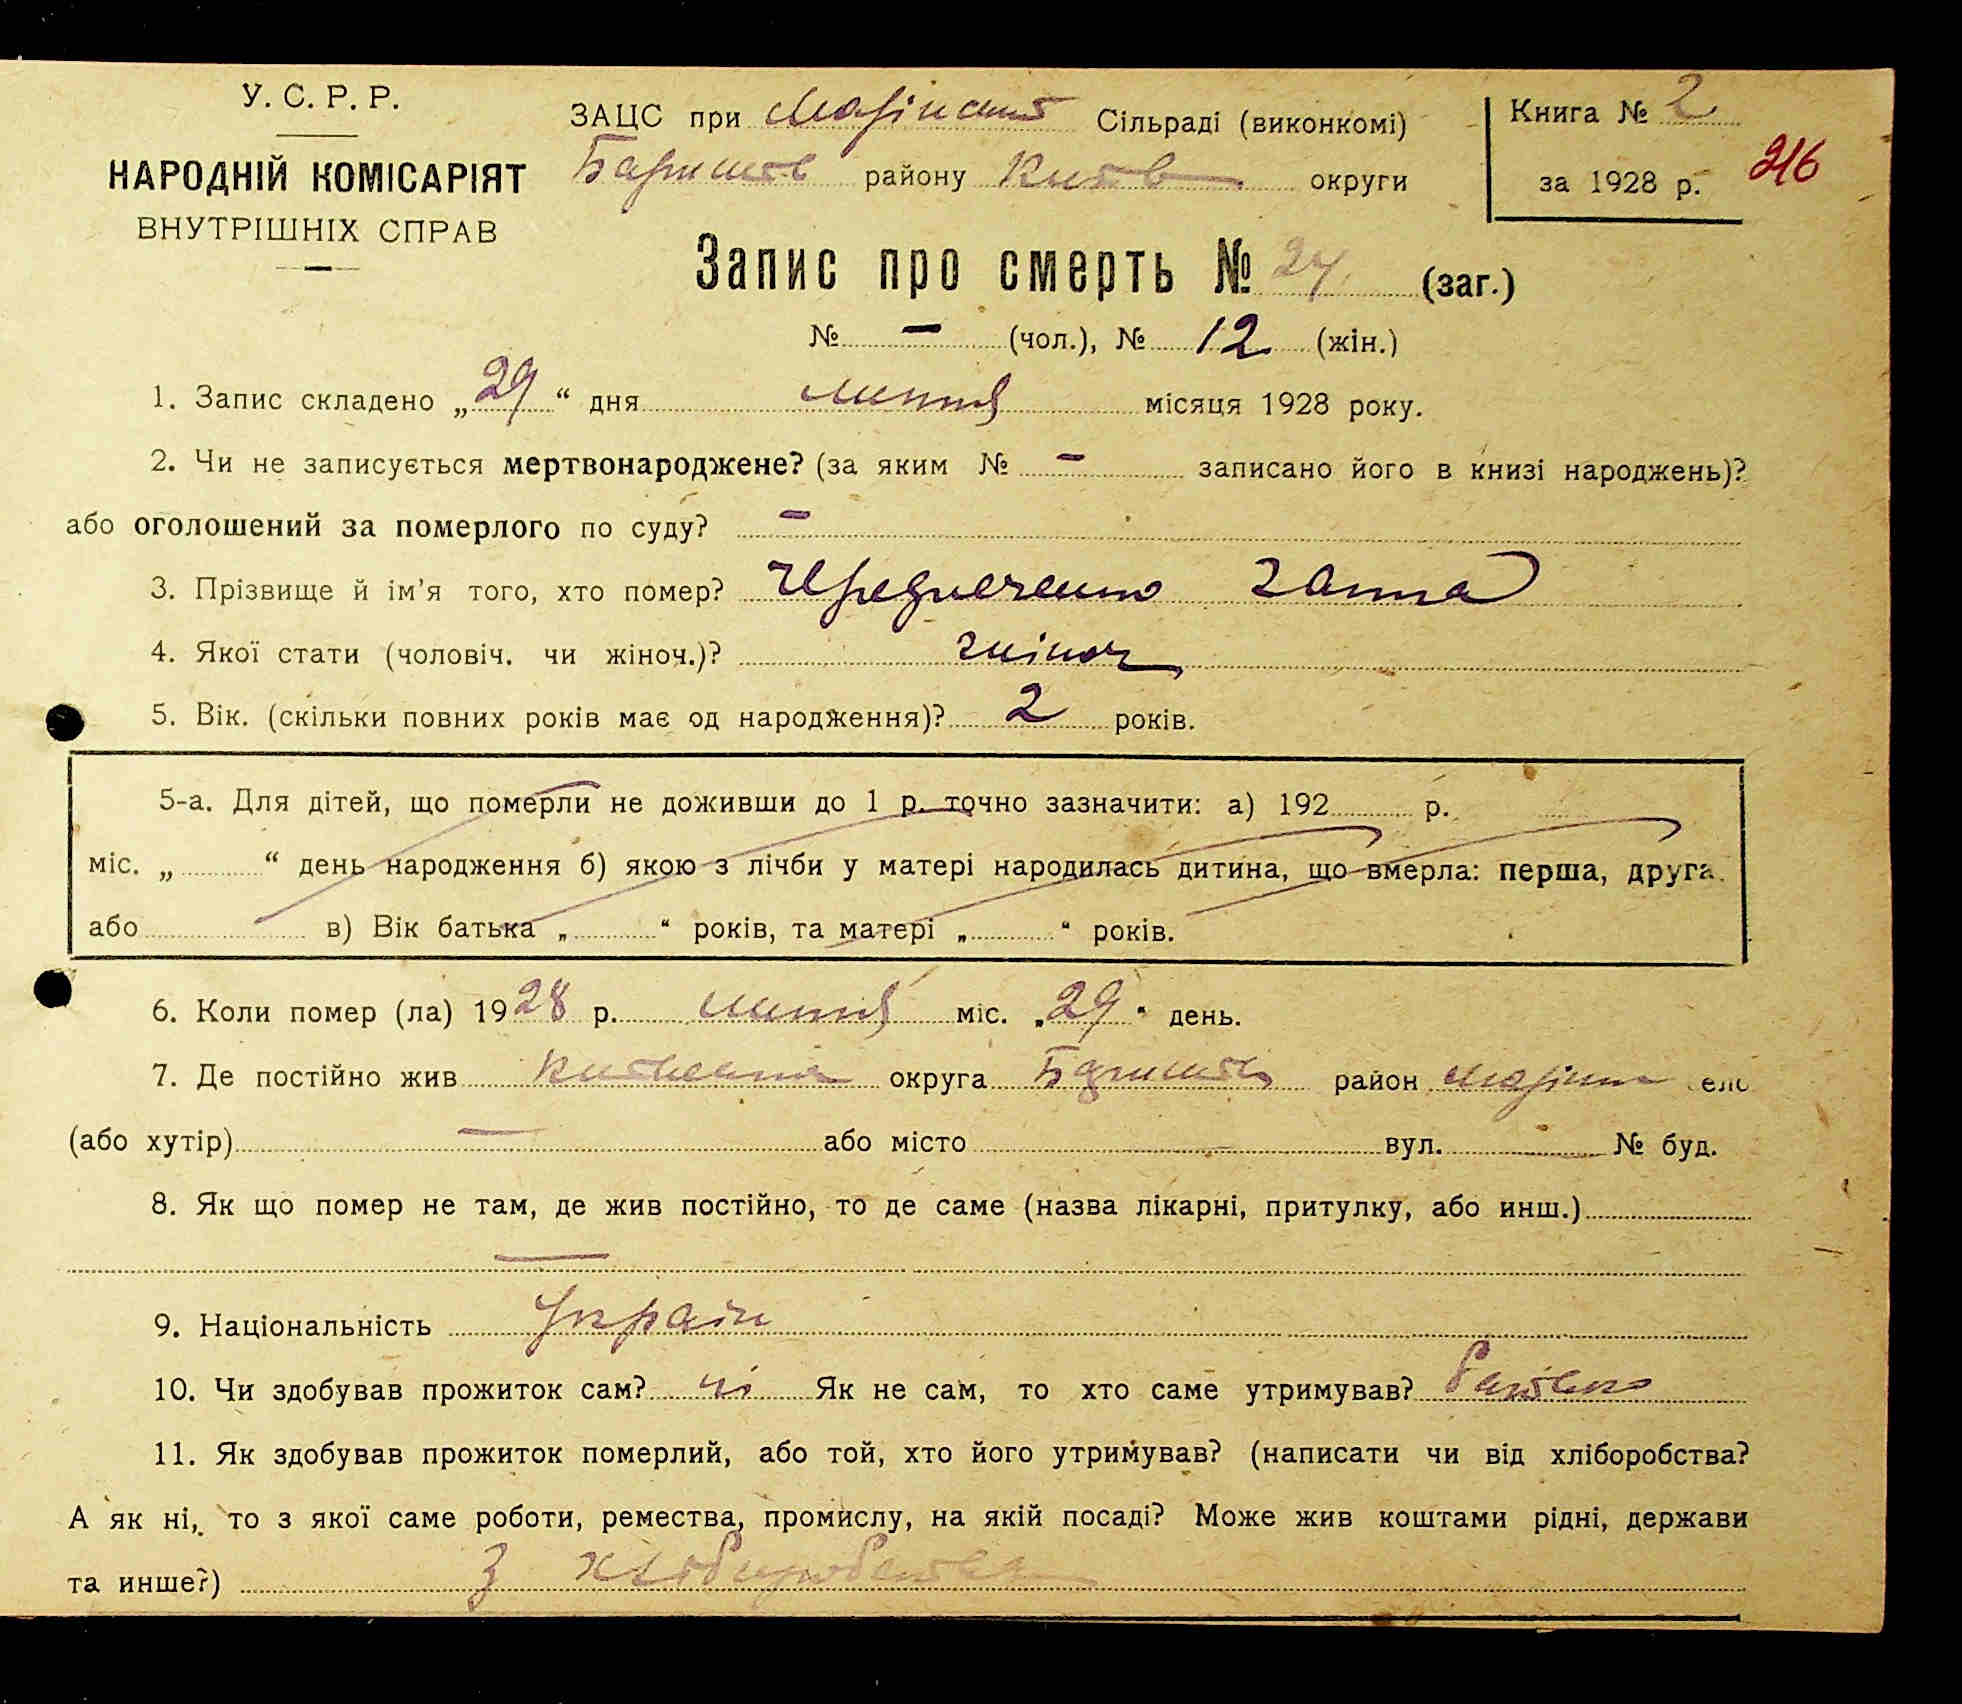 У. С. Р. Р.
НАРОДНІЙ КОМІСАРІЯТ
ВНУТРІШНІХ СПРАВ
ЗАЦС при Сільраді (виконкомі)
Баришів району Київ округи
Книга № 2
за 1928 р.
216
Запис про смерть № 24 (заг.)
№ – (чол.), № 12 (жін.)
1. Запис складено „29“ дня липня місяця 1928 року.
2. Чи не записується мертвонароджене? (за яким № – записано його в книзі народжень)?
або оголошений за померлого по суду? –
3. Прізвище й ім’я того, хто помер? Чередниченко Ганна
4. Якої стати (чоловіч. чи жіноч.)? жіноч
5. Вік. (скільки повних років має од народження)? 2 років.
5-а. Для дітей, що померли не доживши до 1 р. точно зазначити: а) 192 р.
міс. „ “ день народження б) якою з лічби у матері народилась дитина, що вмерла: перша, друга.
або в) Вік батька „ “ років, та матері „ “ років.
6. Коли помер (ла) 1928 р. липня міс. „29“ день.
7. Де постійно жив округа Баришів район село
(або хутір) — або місто — вул. — № буд.
8. Як що помер не там, де жив постійно, то де саме (назва лікарні, притулку, або инш.)
—
9. Національність Україн
10. Чи здобував прожиток сам? ні Як не сам, то хто саме утримував? батько
11. Як здобував прожиток померлий, або той, хто його утримував? (написати чи від хліборобства?
А як ні, то з якої саме роботи, ремества, промислу, на якій посаді? Може жив коштами рідні, держави
та инше?) З хліборобства